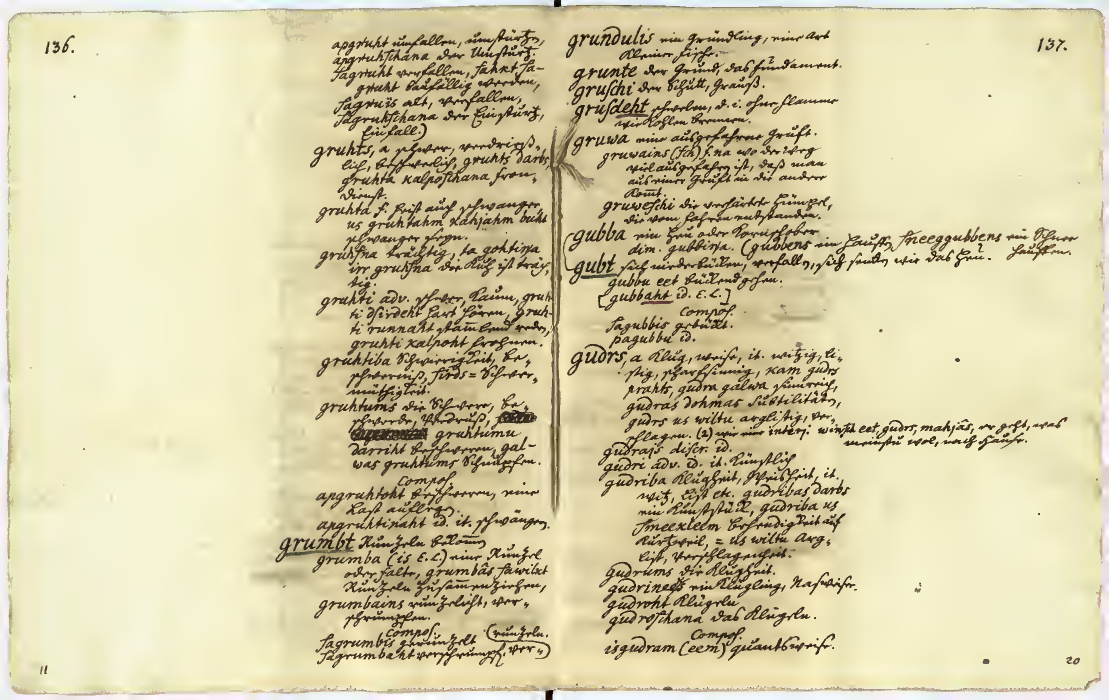 136.
apgruht umfallen, umstürtzen,
apgruhschana der Umsturtz.
sagruht verfallen, sahkt sa-
gruht baufällig werden,
sagruis alt, verfallen,
sagruhschana der Einsturtz,
Einfall.)
gruhts, a schwer, verdrieß-
lich, beschwerlich, gruhts darbs,
gruhta kalposchana fron-
dienst.
gruhta f. heist auch schwanger
us gruhtahm kahjahm buht
schwanger seyn.
gruhsna trächtig, ta gohtina
irr gruhsna die Kuh ist träch-
tig.
gruhti adv. schwer, kaum, gruh-
ti dsirdeht hart hören, gruh-
ti runnaht stamlend reden,
gruhti kalpoht frohnen.
gruhtiba Schwierigkeit, be-
schwerniß, sirds = Schwer-
müthigkeit.
gruhtums die Schwere, be-
schwerde, Verdruß,
gruhtumu
darriht beschweren, gal-
was gruhtums Schnupfen.
Compos.
apgruhtoht beschweren, eine
Last auflegen.
apgruhtinaht id. it. schwängern.
grumbt Runzeln bekommen
grumba (is E.L.) eine Runzel
oder falte, grumbâs sawilkt
Runzeln zusammenziehen,
grumbains runzelicht, ver-
schrumpfen.
Compos.
sagrumbis gerunzelt (runzeln.
sagrumbaht verschrumpf, ver-)
11
137.
grundulis ein Gründling, eine Art
kleiner fische.
grunte der Grund, das fundament.
gruschi der Schutt, Grauß.
grusdeht schwelen, d. i. ohne flamme
wie Kohlen brennen.
gruwa eine ausgefahrne Gruft.
gruwains (sch) f. na wo der Weg
viel ausgefahren ist, daß man
aus einer Gruft in die andere
kommt.
gruweschi die verhärtete Hümpel,
die vom fahren entstanden.
gubba ein Heu oder Kornschober
dim. gubbina. (gubbens ein hauffen, sneeggubbens ein Schnee
hauffen.
gubt sich niederbücken, verfallen, sich senken wie das Heu.
gubbu eet bückend gehen.
[gubbaht id. E.L.]
Compos.
sagubbis gebückt.
pagubbu id.
gudrs, a klug, weise, it. witzig, li-
stig, scharfsinnig, kam gudrs
prahts, gudra galwa sinnreich,
gudras dohmas subtilitäten,
gudrs us wiltu arglistig, ver-
schlagen. (2) wie eine interj. winsch eet, gudrs, mahjâs, er geht, was
meinstu wol, nach hause.
gudrajs discr. id.
gudri adv. id. it. künstlich
gudriba Klugheit, Weisheit, it.
witz, list etc. gudribas darbs
ein Kunststück, gudriba us
smeekleem behendigkeit auf
kurtzweil, = us wiltu Arg-
list, Verschlagenheit.
gudrums die Klugheit.
gudrineeks ein Klügling, Nasweiser.
gudroht klügeln
gudroschana das Klügeln.
Compos.
isgudram (eem) quantsweise.
20